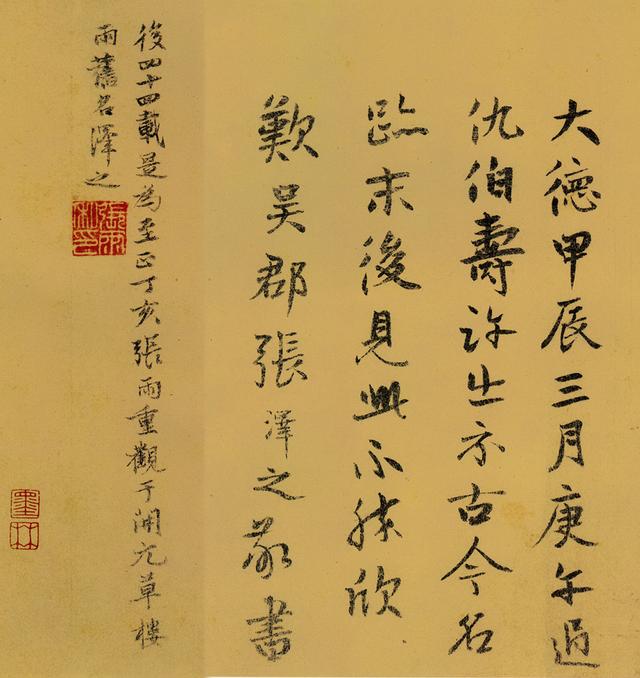 大德甲辰三月庚午過
仇伯壽許出示古今名
跡末後見此不勝欣
歎吳郡張澤之敬書
後四十四載是為至正丁亥張雨重觀于開元草樓
雨舊名澤之
墨林